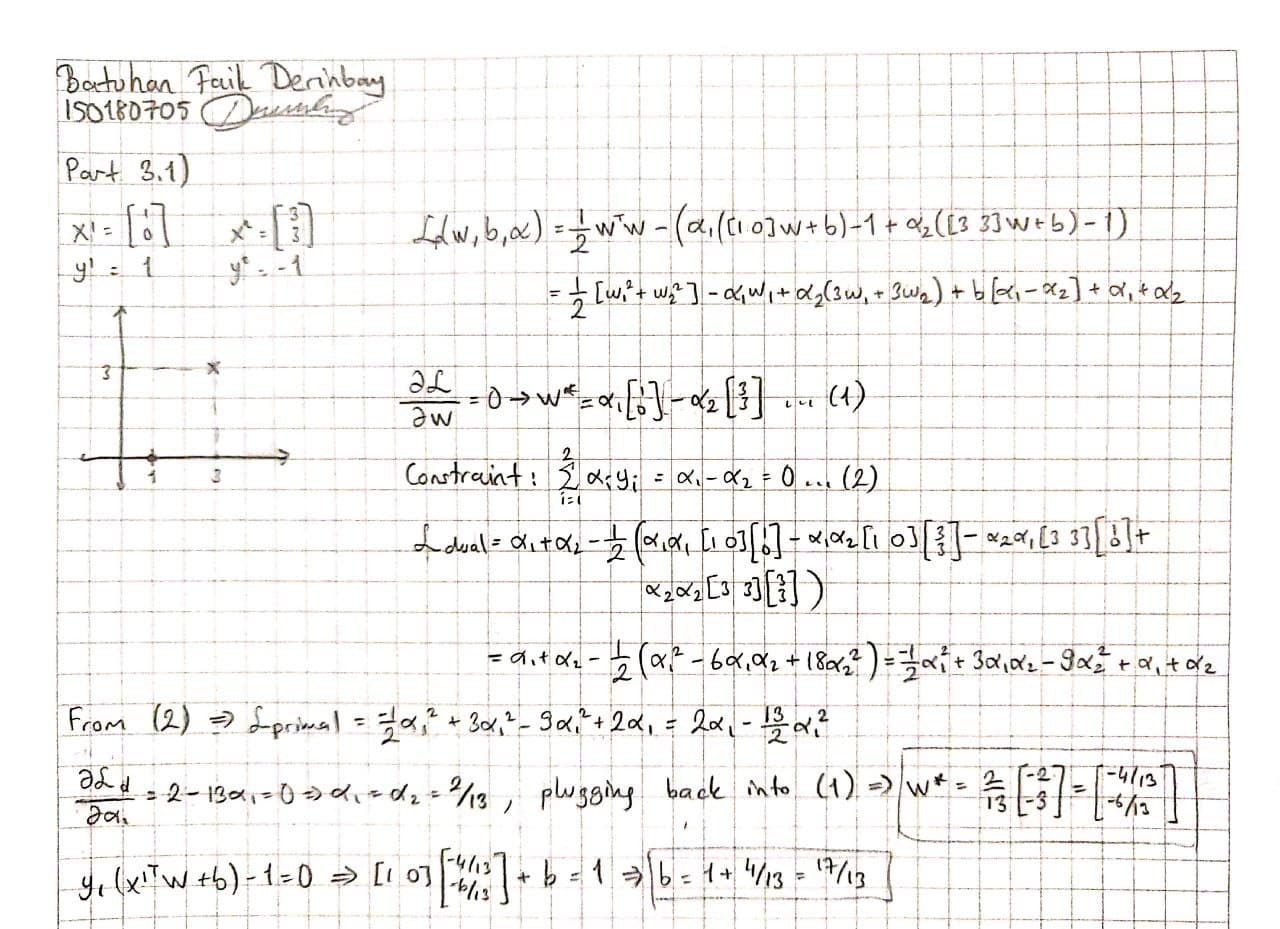 Batuhan Faik Derinbay
150180705
Part 3.1)
x¹ = [1 0] x² = [3 3]
y¹ = 1 y² = -1
ℒ(w,b,α) = 1/2 wᵀw - (α₁([1 0]w+b)-1 + α₂([3 3]w+b)-1)
= 1/2 [w₁² + w₂²] - α₁w₁ + α₂(3w₁ + 3w₂) + b[α₁ - α₂] + α₁ + α₂
3
1 3
∂ℒ/∂w = 0 → w* = α₁[1 0] - α₂[3 3] ... (1)
Constraint: Σ_{i=1}^{2} αᵢyᵢ = α₁ - α₂ = 0 ... (2)
ℒdual = α₁ + α₂ - 1/2 (α₁α₁ [1 0][1 0] - α₁α₂ [1 0][3 3] - α₂α₁ [3 3][1 0] +
α₂α₂ [3 3][3 3])
= α₁ + α₂ - 1/2 (α₁² - 6α₁α₂ + 18α₂²) = -1/2 α₁² + 3α₁α₂ - 9α₂² + α₁ + α₂
From (2) ⇒ ℒprimal = -1/2 α₁² + 3α₁² - 9α₁² + 2α₁ = 2α₁ - 13/2 α₁²
∂ℒd/∂α₁ = 2 - 13α₁ = 0 ⇒ α₁ = α₂ = 2/13 , plugging back into (1) ⇒ w* = 2/13 [-2 -3] = [-4/13 -6/13]
y₁(x¹ᵀw + b) - 1 = 0 ⇒ [1 0][-4/13 -6/13] + b = 1 ⇒ b = 1 + 4/13 = 17/13